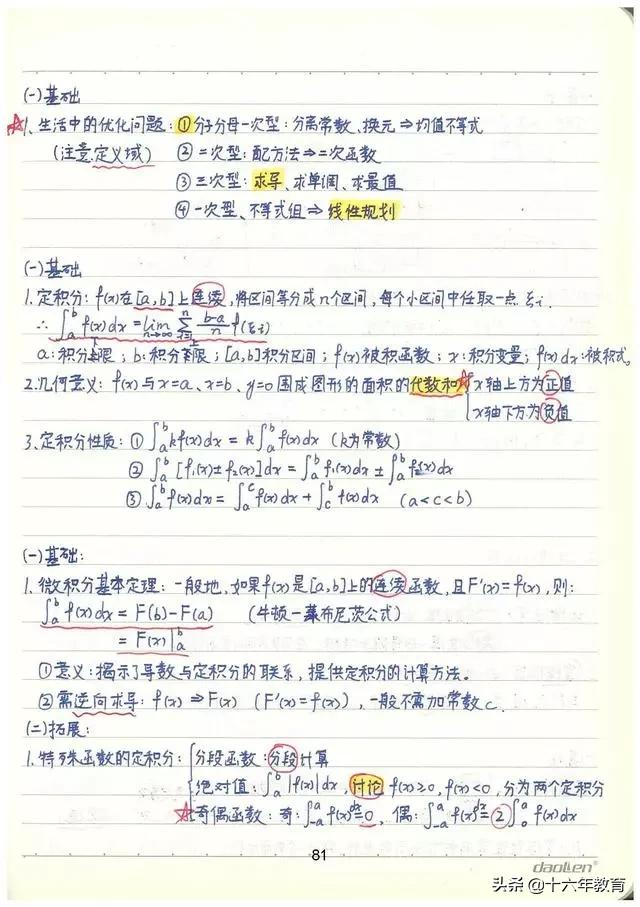 (一)基础
☆1、生活中的优化问题:①分子分母一次型:分离常数、换元⇒均值不等式
(注意定义域) ②二次型:配方法⇒二次函数
③三次型:求导、求单调、求最值
④一次型、不等式组⇒线性规划
(一)基础
1.定积分:f(x)在[a,b]上连续,将区间等分成n个区间,每个小区间中任取一点ξi.
∴ ∫_a^b f(x)dx = lim_{n→∞} Σ_{i=1}^n (b-a)/n f(ξi)
a:积分下限;b:积分上限;[a,b]积分区间;f(x)被积函数;x:积分变量;f(x)dx:被积式。
2.几何意义:f(x)与x=a、x=b、y=0围成图形的面积的代数和☆{x轴上方为正值
x轴下方为负值
3.定积分性质:①∫_a^b kf(x)dx = k∫_a^b f(x)dx (k为常数)
②∫_a^b [f₁(x)±f₂(x)]dx = ∫_a^b f₁(x)dx ± ∫_a^b f₂(x)dx
③∫_a^b f(x)dx = ∫_a^c f(x)dx + ∫_c^b f(x)dx (a<c<b)
(一)基础:
1.微积分基本定理:一般地,如果f(x)是[a,b]上的连续函数,且F'(x)=f(x),则:
∫_a^b f(x)dx = F(b)-F(a) (牛顿—莱布尼茨公式)
= F(x)|_a^b
①意义:揭示了导数与定积分的联系,提供定积分的计算方法。
②需逆向求导:f(x)⇒F(x) (F'(x)=f(x)),一般不需加常数c.
(二)拓展:
1.特殊函数的定积分:{分段函数:分段计算
绝对值:∫_a^b |f(x)|dx,讨论f(x)≥0,f(x)<0,分为两个定积分
☆奇偶函数:奇:∫_{-a}^a f(x)dx=0,偶:∫_{-a}^a f(x)dx=2∫_0^a f(x)dx
81
daolen®
头条@十六年教育